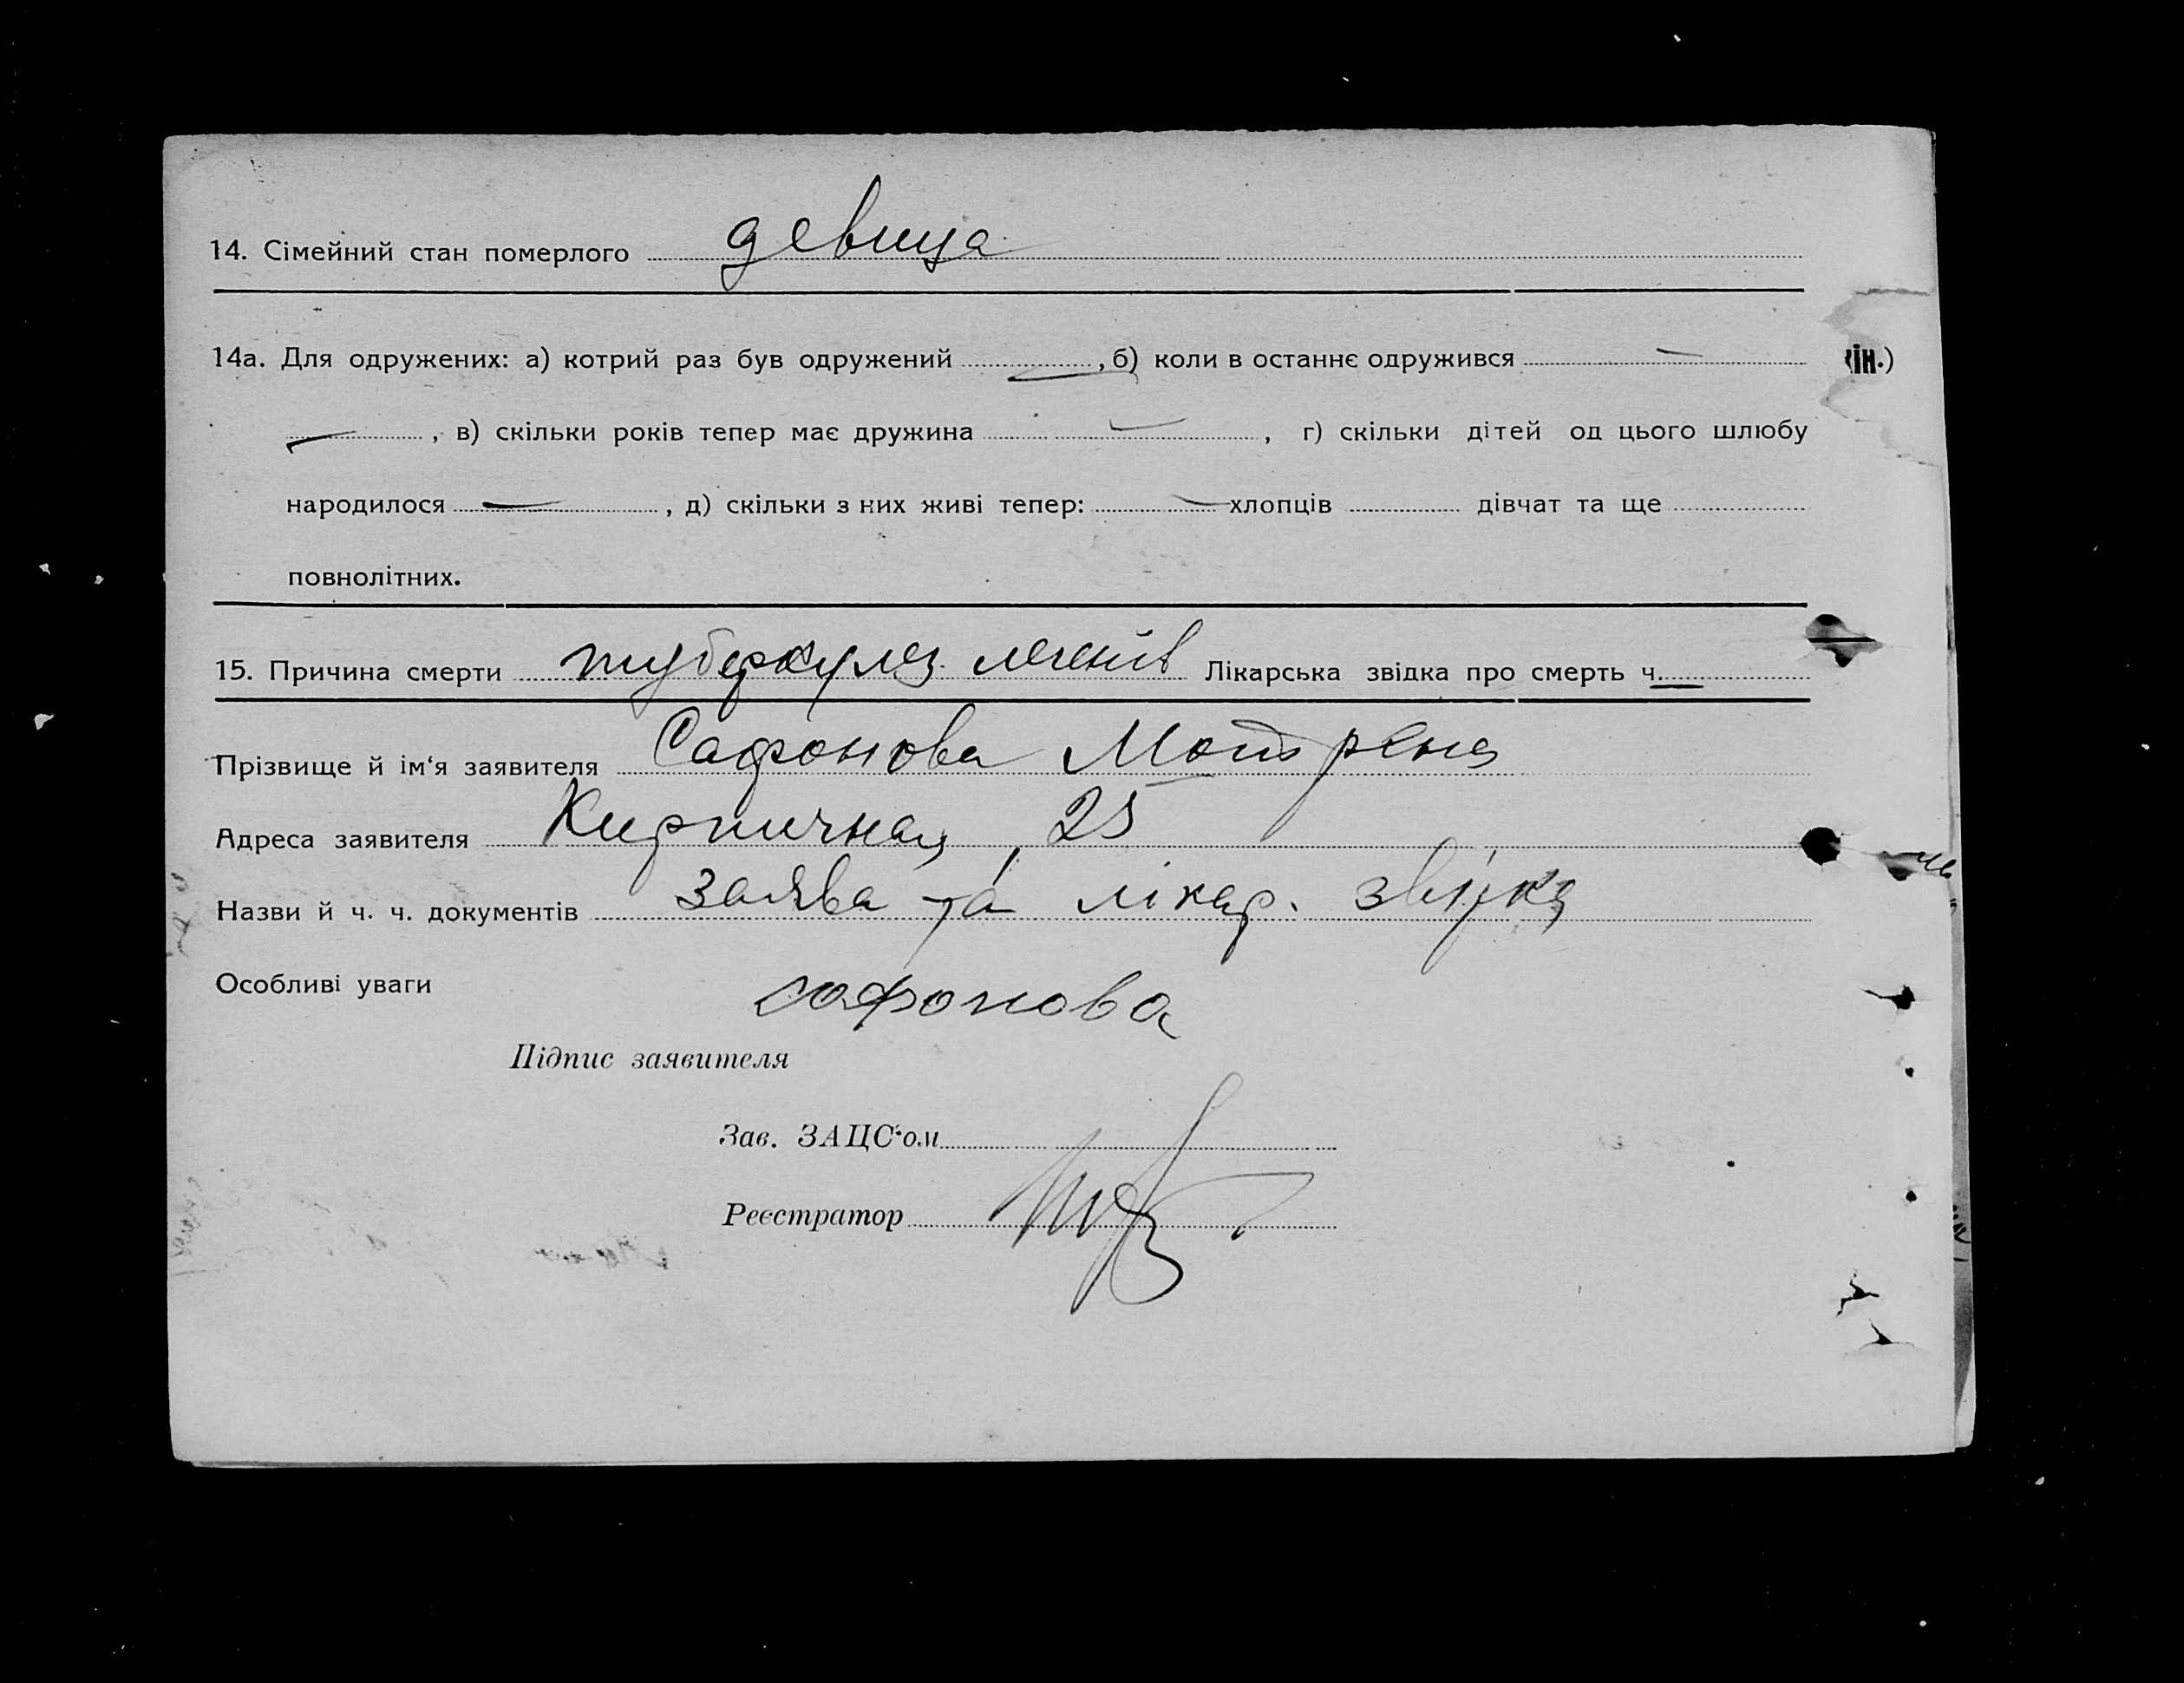 14. Сімейний стан померлого девица
14а. Для одружених: а) котрий раз був одружений —, б) коли в останнє одружився —
—, в) скільки років тепер має дружина —, г) скільки дітей од цього шлюбу
народилося —, д) скільки з них живі тепер: — хлопців дівчат та ще
повнолітних.
15. Причина смерти туберкулез легенів Лікарська звідка про смерть ч. —
Прізвище й ім'я заявителя Сафонова Мотрена
Адреса заявителя Кирпичная, 25
Назви й ч. ч. документів заява та лікар. звідка
Особливі уваги
сафонова
Підпис заявителя
Зав. ЗАЦС'ом
Реєстратор
ін.)